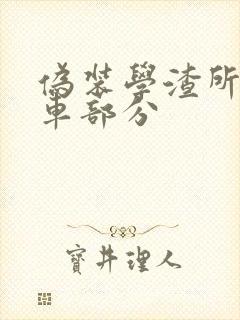 偽裝學渣所
車部分
寶井理人